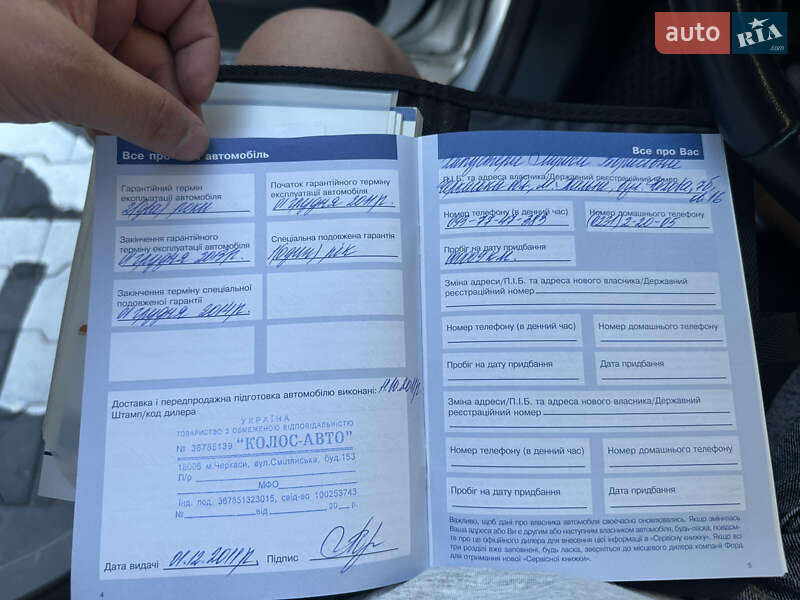 auto RIA.com
Все про автомобіль
Гарантійний термін
експлуатації автомобіля
2(два) роки
Початок гарантійного терміну
експлуатації автомобіля
01 грудня 2011р.
Закінчення гарантійного
терміну експлуатації автомобіля
01 грудня 2013р.
Спеціальна подовжена гарантія
1(один) рік
Закінчення терміну спеціальної
подовженої гарантії
01 грудня 2014р.
Доставка і передпродажна підготовка автомобілю виконані:
Штамп/код дилера
УКРАЇНА
ТОВАРИСТВО З ОБМЕЖЕНОЮ ВІДПОВІДАЛЬНІСТЮ
№ 36785139 "КОЛОС-АВТО"
18006 м.Черкаси, вул.Смілянська, буд.153
П/р
МФО
Інд. под. 367851323015, свід-во 100253743
№ від 20 р.
Дата видачі 01.12.2011р. Підпис
4
Все про Вас
П.І.Б. та адреса власника/Державний реєстраційний номер
Номер телефону (в денний час)
093-77-47-383
Номер домашнього телефону
2-20-05
Пробіг на дату придбання
Зміна адреси/П.І.Б. та адреса нового власника/Державний
реєстраційний номер
Номер телефону (в денний час)
Номер домашнього телефону
Пробіг на дату придбання
Дата придбання
Зміна адреси/П.І.Б. та адреса нового власника/Державний
реєстраційний номер
Номер телефону (в денний час)
Номер домашнього телефону
Пробіг на дату придбання
Дата придбання
Важливо, щоб дані про власника автомобіля своєчасно оновлювались. Якщо змінилась
Ваша адреса або Ви є другим або наступним власником автомобіля, будь-ласка, повідом-
те про це офіційного дилера для внесення цієї інформації в «Сервісну книжку». Якщо всі
три розділи вже заповнені, будь ласка, зверніться до місцевого дилера компанії Форд
для отримання нової «Сервісної книжки».
5